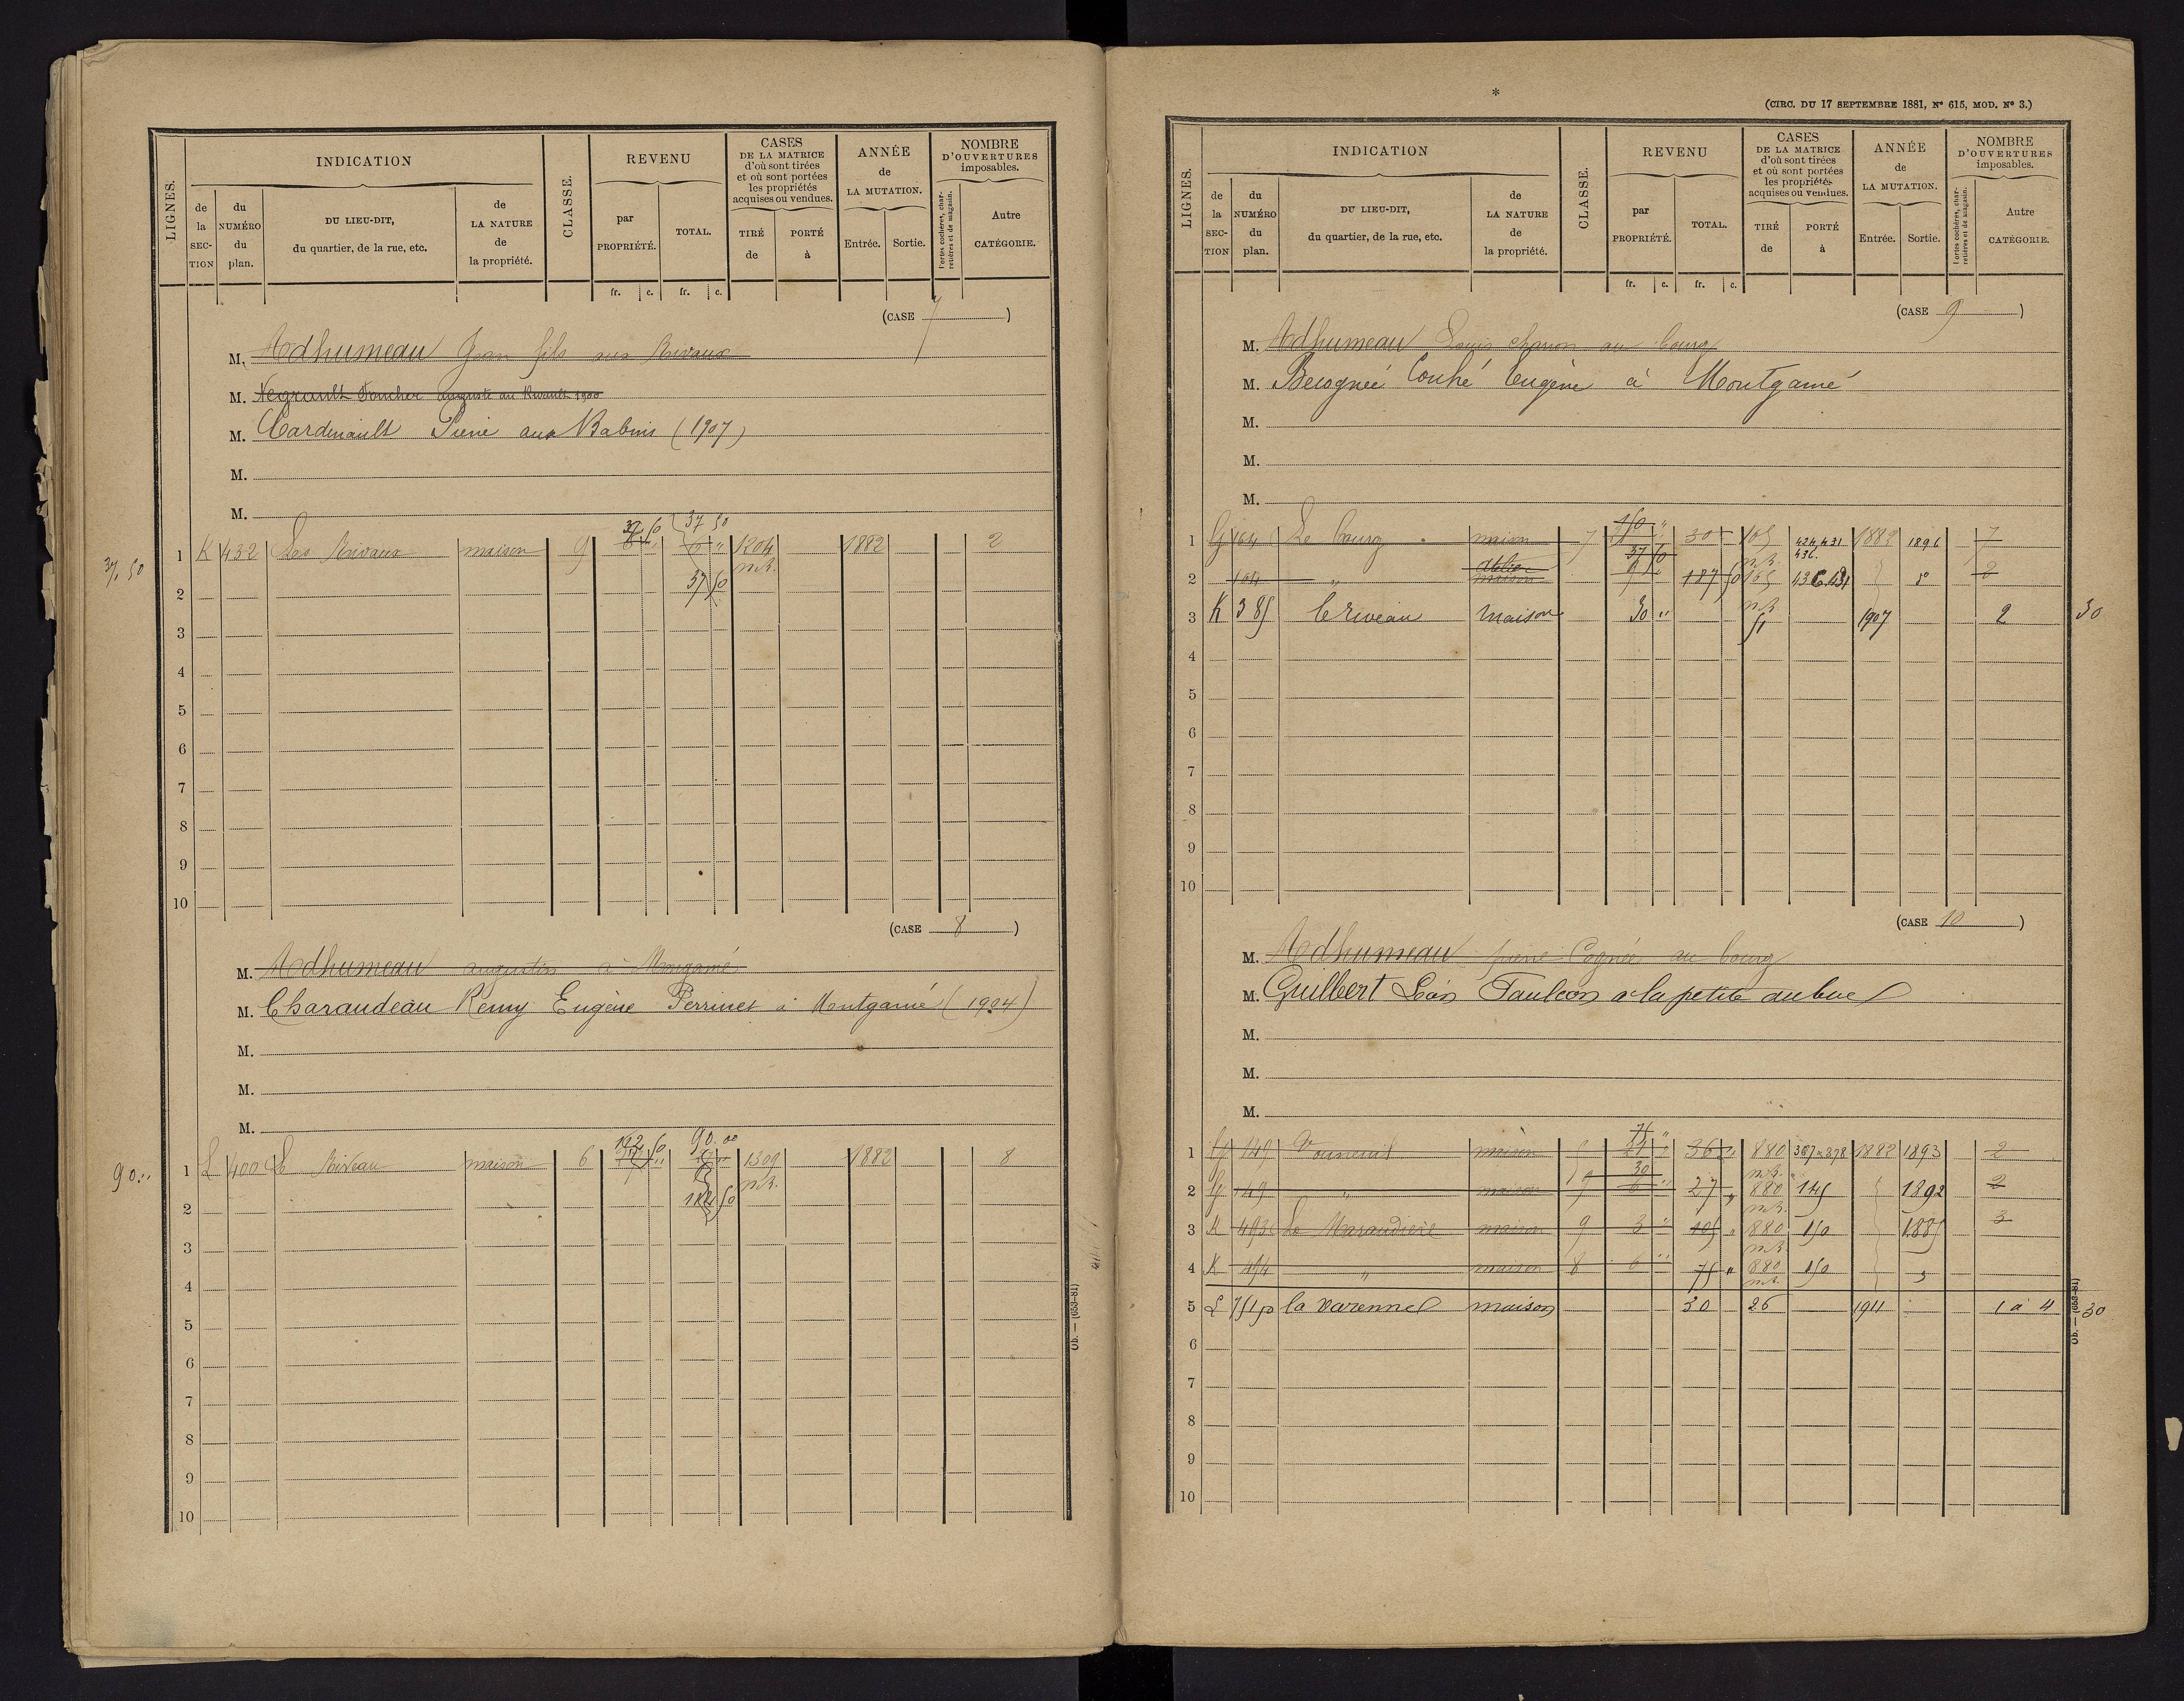 LIGNES.
INDICATION
de la SECTION
du NUMÉRO du plan.
DU LIEU-DIT, du quartier, de la rue, etc.
de LA NATURE de la propriété.
CLASSE.
REVENU
par PROPRIÉTÉ.
TOTAL.
fr. c. fr. c.
CASES DE LA MATRICE d'où sont tirées et où sont portées les propriétés acquises ou vendues.
TIRÉ de
PORTÉ à
ANNÉE de LA MUTATION.
Entrée. Sortie.
NOMBRE D'OUVERTURES imposables.
Portes cochères, charretières et de magasin.
Autre CATÉGORIE.
(CASE 7)
M. Adhumeau Jean fils aux Rivaux
M. Negrault Foucher auguste au Rivault 1900
M. Cardinault Pierre aux Babins (1907)
M.
M.
37,50
37 50 37 50
1 K 432 Les Rivaux maison 9 6 " 6 " 1204 1882 2
m.R.
2 37 50
3
4
5
6
7
8
9
10
(CASE 8)
M. Adhumeau augustin à
M. Charaudeau Remy Eugène Perrinet à Montgamé (1904)
M.
M.
M.
90."
90.00
1 L 400 Le Riveau maison 6 1309 1882 8
m.R.
2
3
4
5
6
7
8
9
10
Ob. — (653-81)
*
(CIRC. DU 17 SEPTEMBRE 1881, N° 615, MOD. N° 3.)
LIGNES.
INDICATION
de la SECTION
du NUMÉRO du plan.
DU LIEU-DIT, du quartier, de la rue, etc.
de LA NATURE de la propriété.
CLASSE.
REVENU
par PROPRIÉTÉ.
TOTAL.
fr. c. fr. c.
CASES DE LA MATRICE d'où sont tirées et où sont portées les propriétés acquises ou vendues.
TIRÉ de
PORTÉ à
ANNÉE de LA MUTATION.
Entrée. Sortie.
NOMBRE D'OUVERTURES imposables.
Portes cochères, charretières et de magasin.
Autre CATÉGORIE.
(CASE 9)
M. Adhumeau Louis au bourg
M. Couhé Eugène à Montgamé
M.
M.
M.
150 "
1 G 164 Le bourg maison 7 30 165 424,431 436. 1882 1896 7
37 50 m.R.
2 164 " atelier maison 187 50 165 436.431 d° 2
m.R.
3 K 385 le riveau maison 30 " 51 1907 2 30
4
5
6
7
8
9
10
(CASE 10)
M. Adhumeau pierre Cognée au bourg
M. Guilbert Léon Faulcon à la petite
M.
M.
M.
75 "
1 G 149 Vouneuil maison 36 " 880 1882 1893 2
30 m.R.
2 G 149 " maison 9 6 " 27 " 880 145 1892 2
m.R.
3 K 493 La Maraudière maison 9 3 " 105 " 880 150 1885 3
m.R.
4 K 494 " maison 8 6 " 75 " 880 150 "
m.R.
5 L 751p la varenne maison 30 26 1911 1 à 4 30
6
7
8
9
10
Ob. — (653-81)